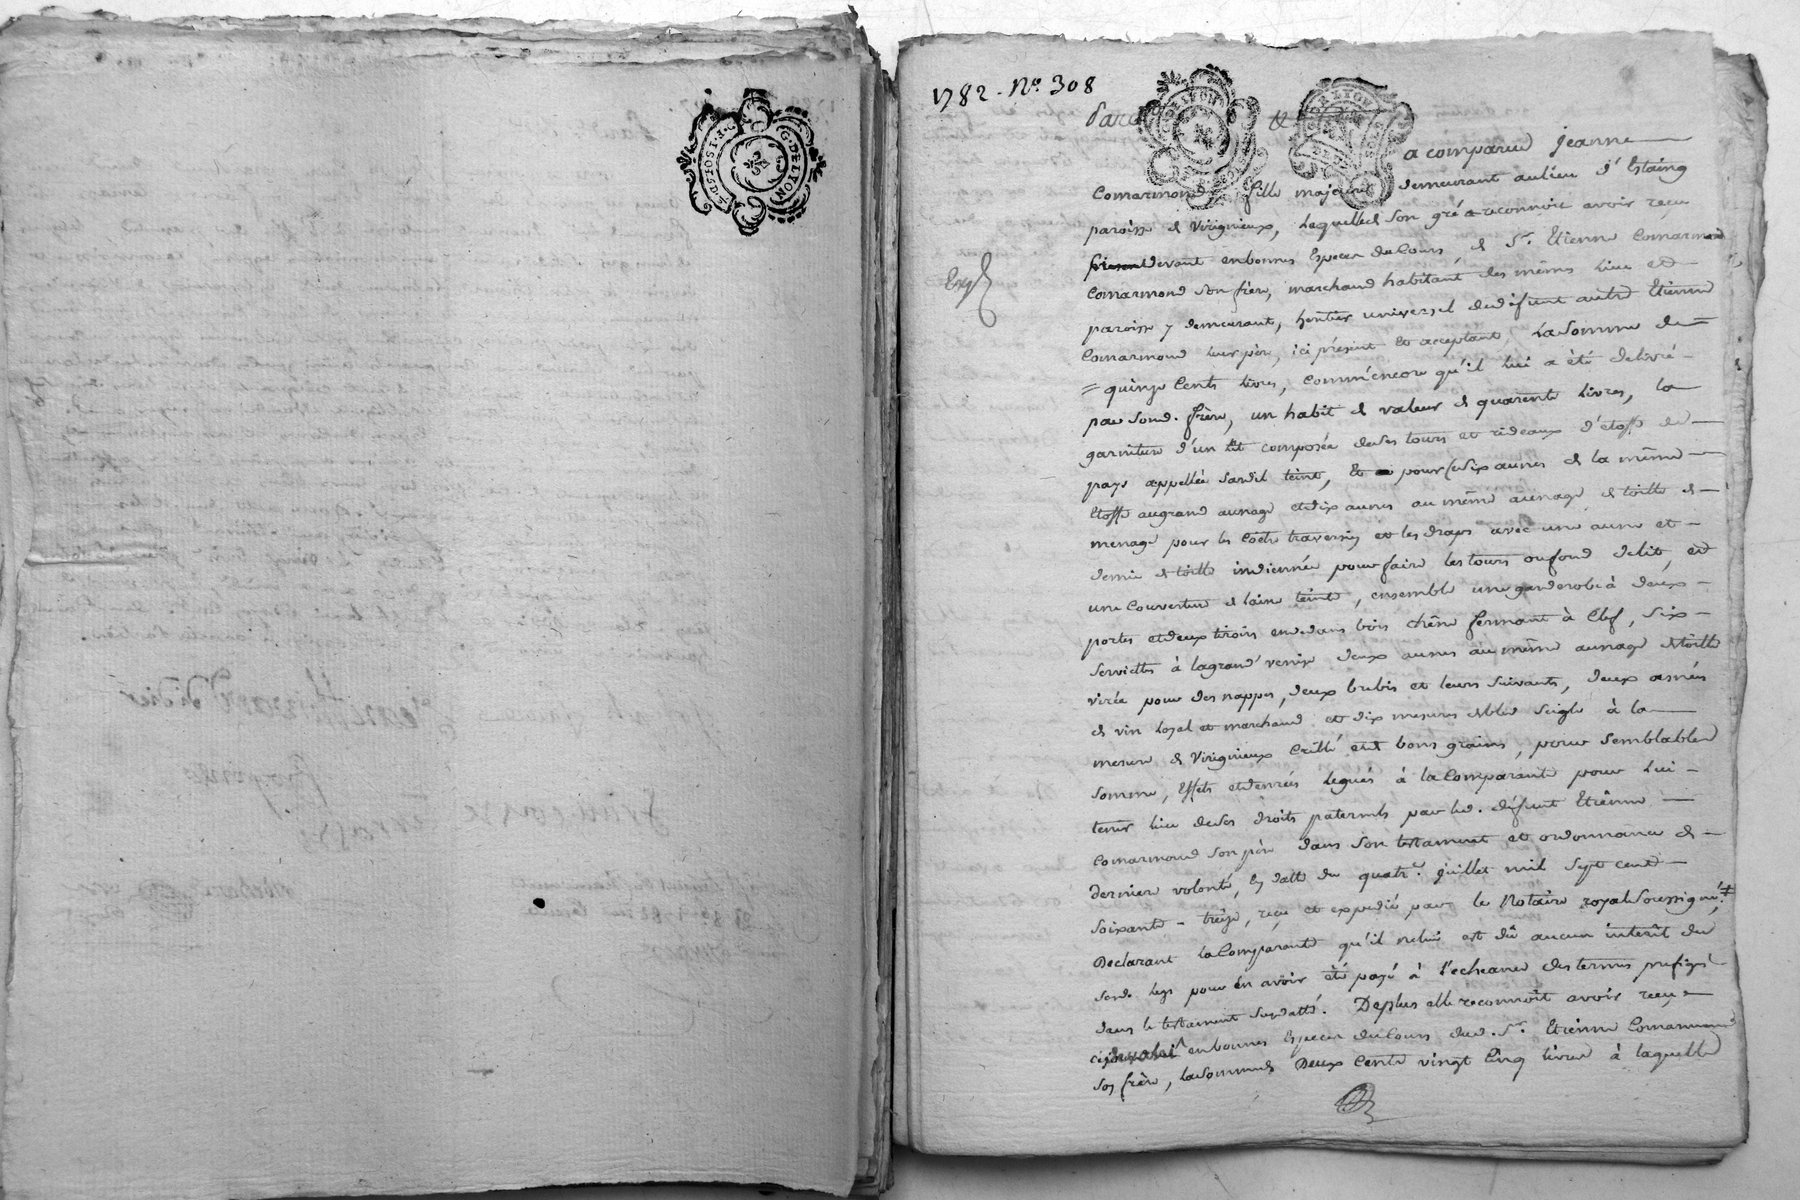 G. DE LYON
1782 - N.º 308
a comparu jeanne
Comarmond fille majeure demeurant au lieu d'Estaing
paroisse de Virigneux, laquelle de son gré reconnoit avoir reçu
devant en bonnes Especes de Cours de S.r Etienne Comarmond
Exp.
Comarmond son frere, marchand habitant des mêmes lieu et
paroisse y demeurant, heritier universel dudéfunt autre Etienne
Comarmond leur père, ici présent et acceptant, La somme de
= quinze Cents livres, comm'encore qu'il lui a été delivré
par sond. frère, un habit de valeur de quarente Livres, la
garniture d'un lit composée de ses tours et rideaux d'étoffe de
pays appellée teint, et pour six aunes de la même
Etoffe augrand aunage et dix aunes au même aunage de toille de
menage pour les traversins et les draps avec une aune et
demie de toille indiennée pour faire les tours ou fond de lit, et
une Couverture de laine teinte, ensemble une garderobe à deux
portes et deux tiroirs en dedans bois chêne fermant à Clef, six
serviettes à lagrand venise deux aunes au même aunage de toille
virée pour des nappes, deux brebis et leurs suivants, deux asnées
de vin loyal et marchand et dix mesures de bled seigle à la
mesure de Virigneux Criblé et bons grains, pour semblables
somme, Effets et denrées legués à la Comparante pour lui
tenir lieu de ses droits paternels par led. défunt Etienne
Comarmond son père dans son testament et ordonnance de
derniere volonté, en datte du quatr.e juillet mil sept cent
soixante-treize, reçu et expedié par le Notaire royal soussigné,
Declarant la Comparante qu'il ne lui est dû aucun interêt du
sond. legs pour en avoir été payé à l'echeance des termes prefigés
dans le testament susdatté. Deplus elle reconnoît avoir reçu
en bonnes Especes du Cours dud. S.r Etienne Comarmond
son frère, la somme de Deux Cents vingt Cinq livres à laquelle